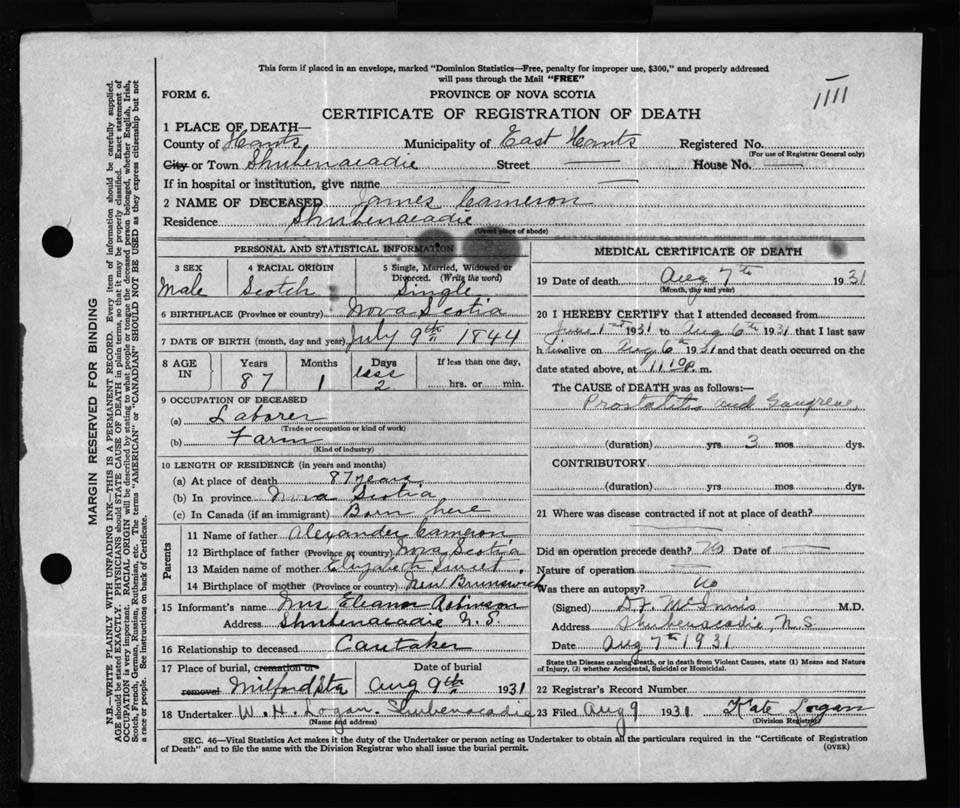 This form if placed in an envelope, marked "Dominion Statistics—Free, penalty for improper use, $300," and properly addressed
will pass through the Mail "FREE"
FORM 6.
PROVINCE OF NOVA SCOTIA
1111
CERTIFICATE OF REGISTRATION OF DEATH
1 PLACE OF DEATH—
County of Hants Municipality of East Hants Registered No.
(For use of Registrar General only)
City or Town Shubenacadie Street — House No. —
If in hospital or institution, give name —
2 NAME OF DECEASED James Cameron
Residence Shubenacadie
(Usual place of abode)
PERSONAL AND STATISTICAL INFORMATION
3 SEX 4 RACIAL ORIGIN 5 Single, Married, Widowed or Divorced. (Write the word)
Male Scotch Single
6 BIRTHPLACE (Province or country) Nova Scotia
7 DATE OF BIRTH (month, day and year) July 9th 1844
8 AGE IN Years Months Days If less than one day,
87 1 less 2 hrs. or min.
9 OCCUPATION OF DECEASED
(a) Laborer
(Trade or occupation or kind of work)
(b) Farm
(Kind of industry)
10 LENGTH OF RESIDENCE (in years and months)
(a) At place of death 87 years
(b) In province Nova Scotia
(c) In Canada (if an immigrant) Born here
Parents
11 Name of father Alexander Cameron
12 Birthplace of father (Province or country) Nova Scotia
13 Maiden name of mother Elizabeth
14 Birthplace of mother (Province or country) New Brunswick
15 Informant's name Mrs Eleanor Robinson
Address Shubenacadie N.S.
16 Relationship to deceased Caretaker
17 Place of burial, cremation or removal Date of burial
Milford Sta Aug 9th 1931
18 Undertaker W. H. Logan. Shubenacadie
(Name and address)
MEDICAL CERTIFICATE OF DEATH
19 Date of death Aug 7th 1931
(Month, day and year)
20 I HEREBY CERTIFY that I attended deceased from
June 1st 1931 to Aug 6th 1931 that I last saw
him alive on Aug 6th 1931 and that death occurred on the
date stated above, at 11 m.
The CAUSE of DEATH was as follows:—
Prostatitis and Gangrene
(duration) yrs 3 mos dys.
CONTRIBUTORY
(duration) yrs mos dys.
21 Where was disease contracted if not at place of death?
Did an operation precede death? No Date of —
Nature of operation —
Was there an autopsy? No
(Signed) D.F. McInnis M.D.
Address Shubenacadie, N.S.
Date Aug 7th 1931
State the Disease causing Death, or in death from Violent Causes, state (1) Means and Nature
of Injury, (2) whether Accidental, Suicidal or Homicidal.
22 Registrar's Record Number
23 Filed Aug 9 1931 Kate Logan
(Division Registrar)
SEC. 46—Vital Statistics Act makes it duty of the Undertaker or person acting as Undertaker to obtain all the particulars required in the "Certificate of Registration
of Death" and to file the same with the Division Registrar who shall issue the burial permit.
(OVER)
MARGIN RESERVED FOR BINDING
N.B.—WRITE PLAINLY WITH UNFADING INK—THIS IS A PERMANENT RECORD. Every item of information should be carefully supplied.
AGE should be stated EXACTLY. PHYSICIANS should STATE CAUSE OF DEATH in plain terms, so that it may be properly classified. Exact statement of
OCCUPATION is very important. RACIAL ORIGIN will be described by stating to what people or tongue the deceased person belonged, whether English, Irish,
Scotch, French, German, Russian, Ruthenian, etc. The terms "AMERICAN" or "CANADIAN" SHOULD NOT BE USED as they express citizenship but not
a race or people. See instructions on back of Certificate.